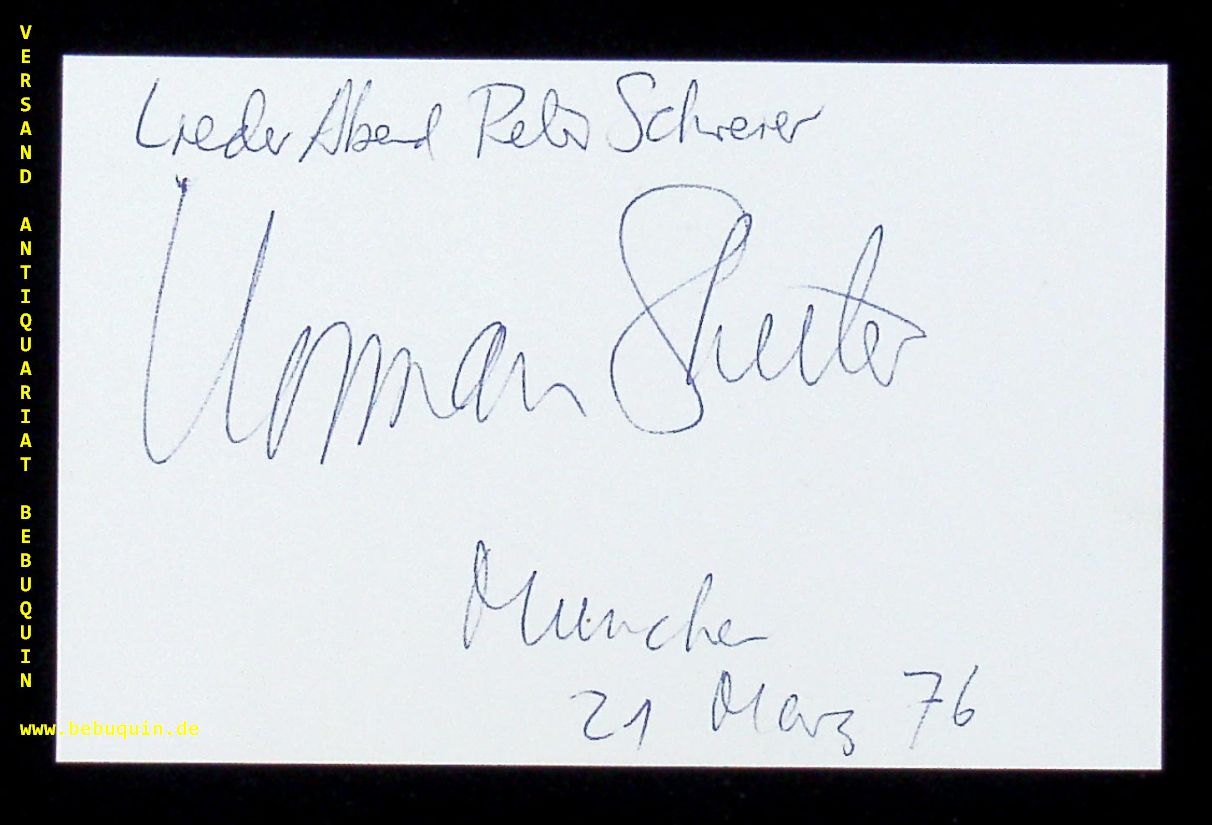 VERSAND ANTIQUARIAT BEBUQUIN
www.bebuquin.de
Lieder Abend Peter Schreier
Norman Shetler
München
21 März 76